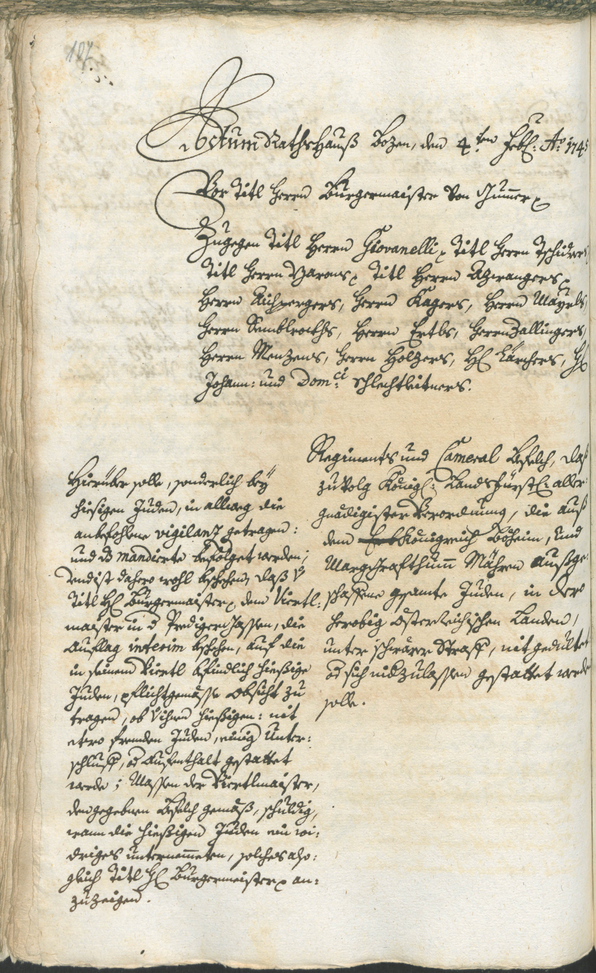 107
Actum Rathshauß Bozen, den 4.ten Febr: Ao. 174
Vor Titl Herrn Bürgermaister von Gumer
Zugegen Titl Herrn Giovanelli, Titl Herrn
Titl Herrn Titl Herrn
Herrn Aichpergers, Herrn Kagers, Herrn Mayrls
Herrn Herrn Ertls, Herrn Zallingers,
Herrn Menzens, Herrn Holzers, H: Kärchers, H:
Johann: und Dom:ci Schlechtleitners.
Hierüber solle, sonderlich bey
hiesigen Juden, in allweg die
anbefohlene vigilanz getragen:
und d mandierte befolget werden;
Und ist dahero wohl beschehen, daß
Titl H: Bürgermaister, dem Viertl:
maister in d Predigerstrassen, die
Auflag interim beschehen, auf die
in seinem Viertl befindlich hiesige
Juden, pflichtgemässe obsicht zu
tragen, ob ihren hiesigen: nit
etwo fremden Juden, einig Unter:
schlupf, od Aufenthalt gestattet
werde; Massen der Viertlmaister,
dem gegebnen Befelch gemäß, schuldig,
wann die hiesigen Juden ein wi:
driges unternemmeten, solches also:
gleich Titl H: Bürgermeister an:
zuzeigen.
Regiments und Cameral Befelch, daß
zuvolg Königl: Landsfürstl: aller
gnädigister Verordnung, die auß
dem Königreich Böheim, und
Margrafthum Mähren außge
schaffene gesamte Juden, in dero
Österreichischen Landen,
unter schwärer Straff, nit geduldet
d sich nidzulassen gestattet werde
solle.